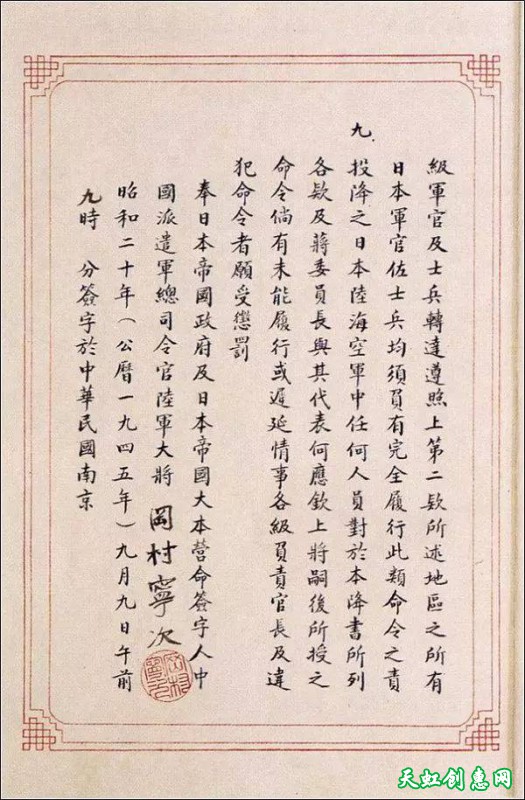 級軍官及士兵轉達遵照上第二款所述地區之所有
日本軍官佐士兵均須負有完全履行此類命令之責
九.
投降之日本陸海空軍中任何人員對於本降書所列
各款及蔣委員長與其代表何應欽上將嗣後所授之
命令倘有未能履行或遲延情事各級負責官長及違
犯命令者願受懲罰
奉日本帝國政府及日本帝國大本營命簽字人中
國派遣軍總司令官陸軍大將 岡村寧次
昭和二十年(公曆一九四五年)九月九日午前
九時 分簽字於中華民國南京
岡村寧次
天虹创惠网